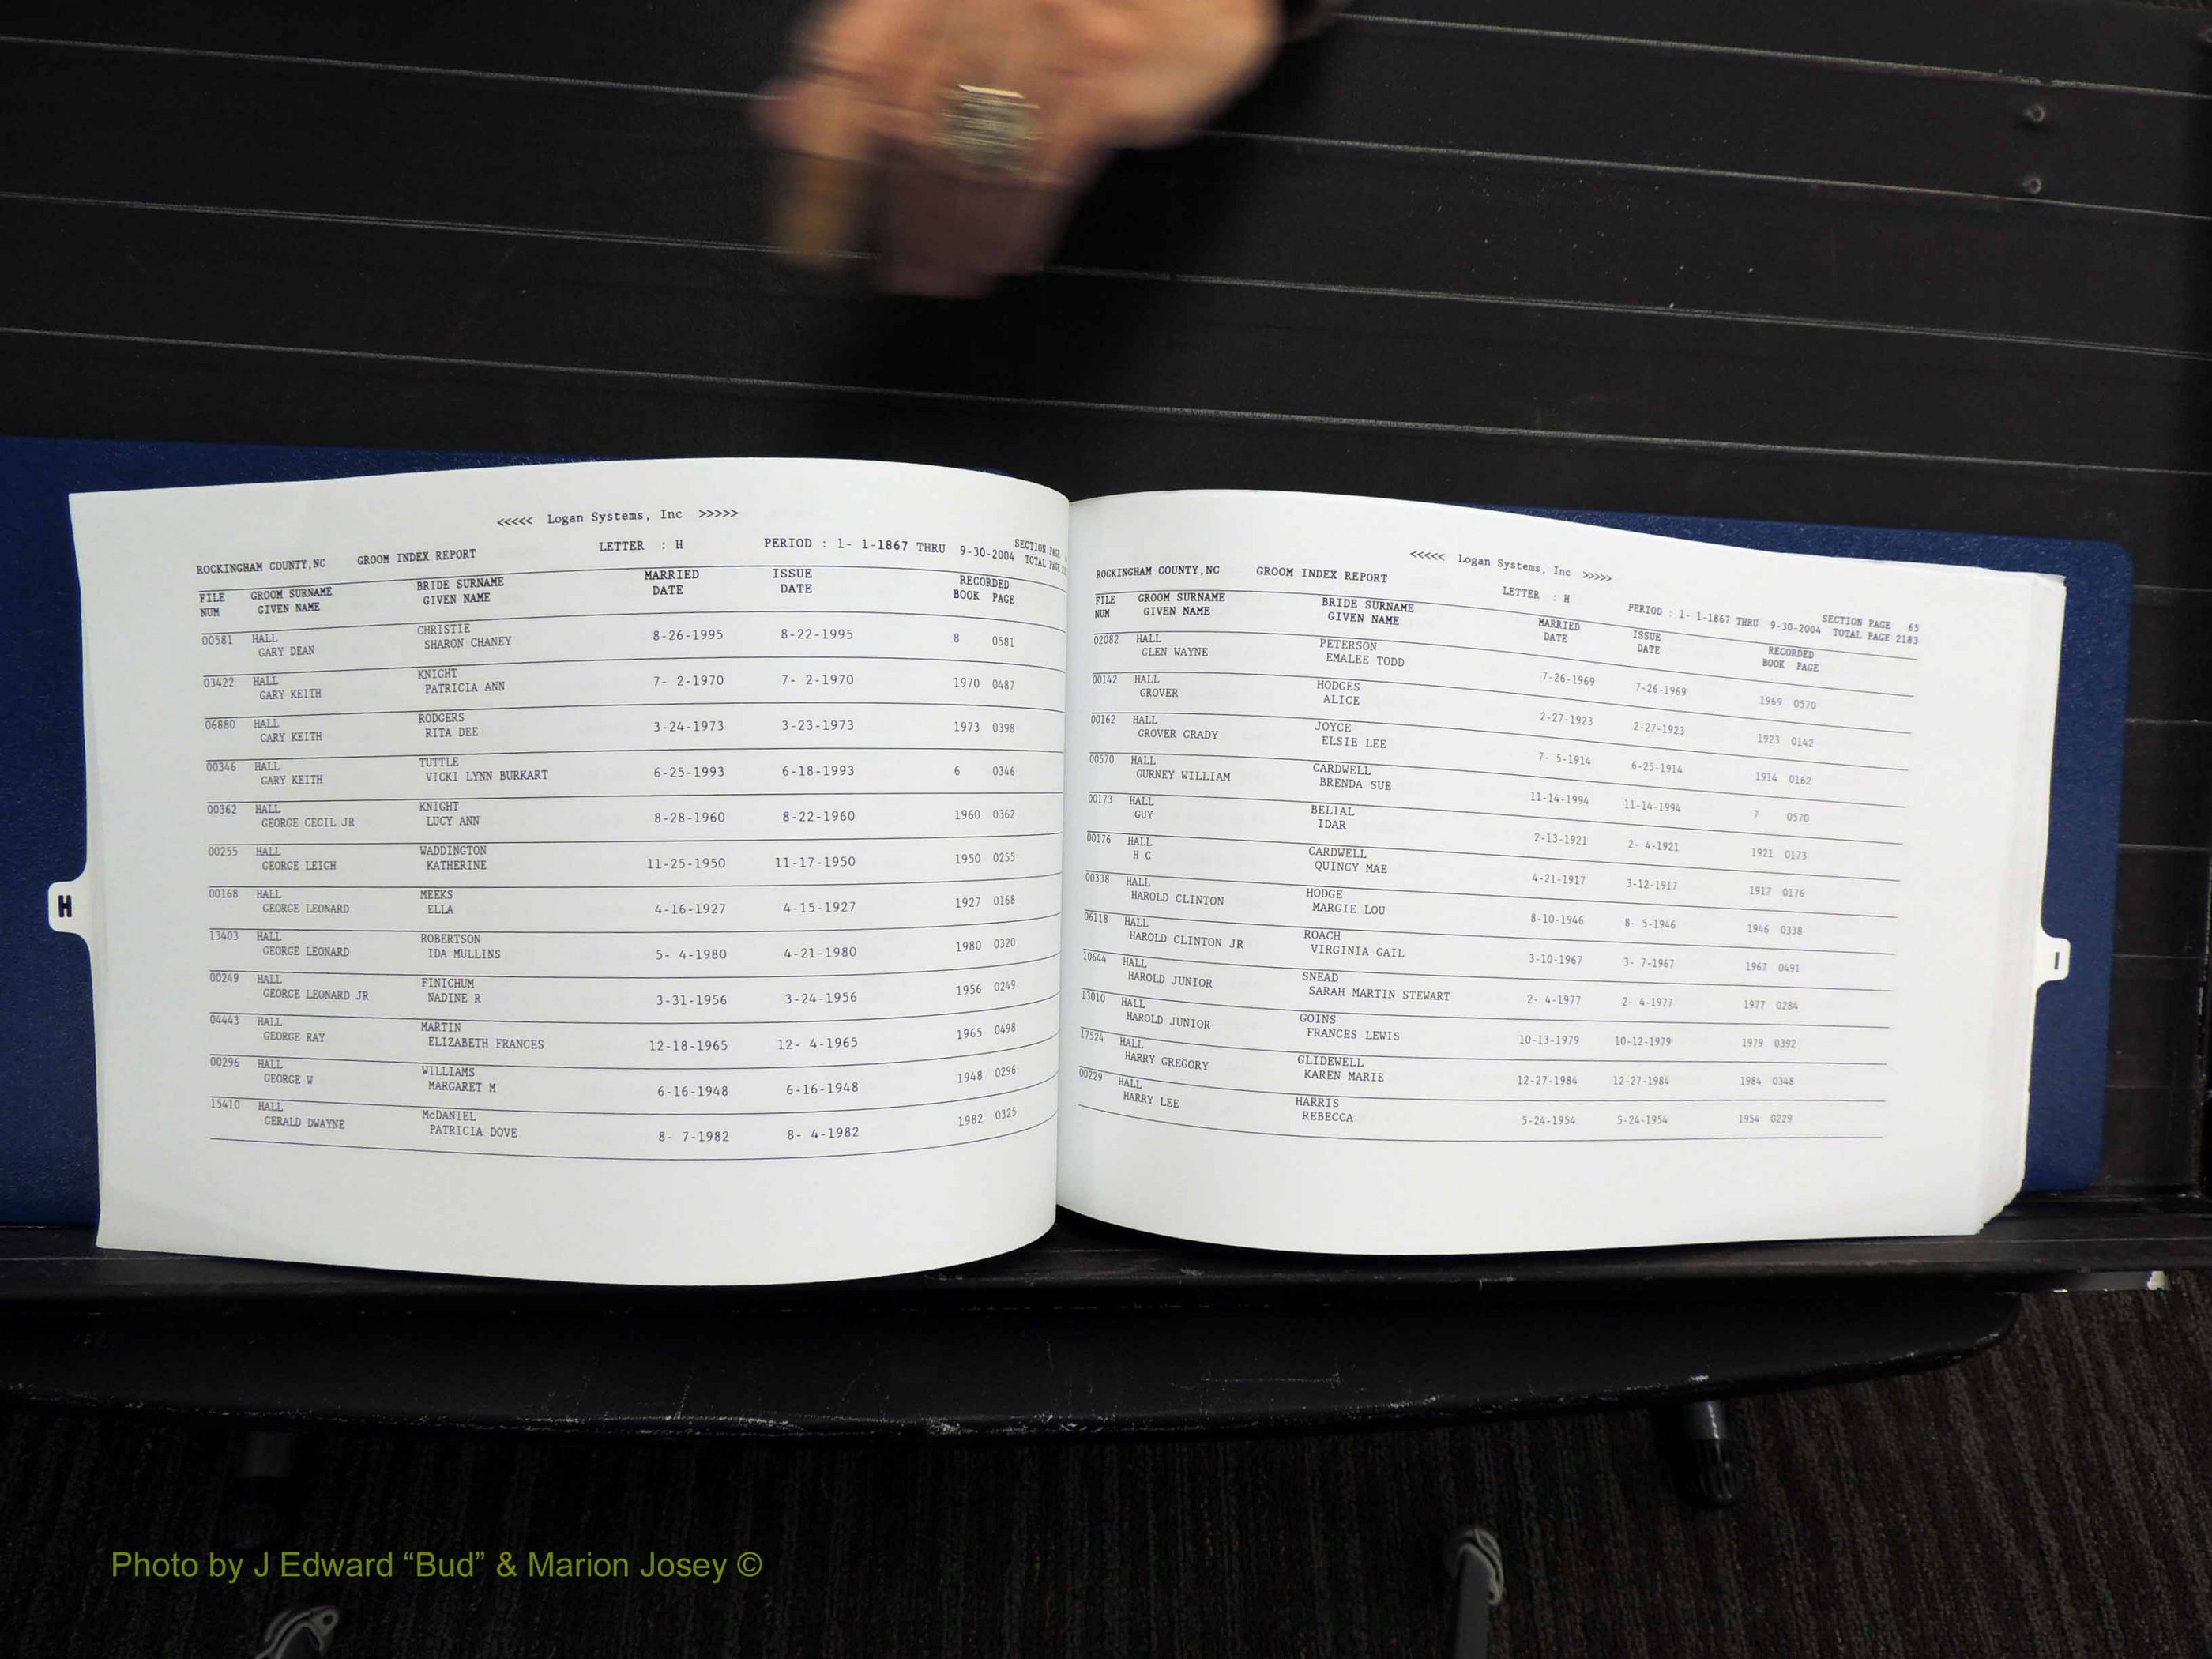 <<<<< Logan Systems, Inc >>>>>
ROCKINGHAM COUNTY,NC GROOM INDEX REPORT LETTER : H PERIOD : 1- 1-1867 THRU 9-30-2004 SECTION PAGE
TOTAL PAGE
FILE GROOM SURNAME BRIDE SURNAME MARRIED ISSUE RECORDED
NUM GIVEN NAME GIVEN NAME DATE DATE BOOK PAGE
00581 HALL CHRISTIE 8-26-1995 8-22-1995 8 0581
GARY DEAN SHARON CHANEY
03422 HALL KNIGHT 7- 2-1970 7- 2-1970 1970 0487
GARY KEITH PATRICIA ANN
06880 HALL RODGERS 3-24-1973 3-23-1973 1973 0398
GARY KEITH RITA DEE
00346 HALL TUTTLE 6-25-1993 6-18-1993 6 0346
GARY KEITH VICKI LYNN BURKART
00362 HALL KNIGHT 8-28-1960 8-22-1960 1960 0362
GEORGE CECIL JR LUCY ANN
00255 HALL WADDINGTON 11-25-1950 11-17-1950 1950 0255
GEORGE LEIGH KATHERINE
00168 HALL MEEKS 4-16-1927 4-15-1927 1927 0168
GEORGE LEONARD ELLA
13403 HALL ROBERTSON 5- 4-1980 4-21-1980 1980 0320
GEORGE LEONARD IDA MULLINS
00249 HALL FINICHUM 3-31-1956 3-24-1956 1956 0249
GEORGE LEONARD JR NADINE R
04443 HALL MARTIN 12-18-1965 12- 4-1965 1965 0498
GEORGE RAY ELIZABETH FRANCES
00296 HALL WILLIAMS 6-16-1948 6-16-1948 1948 0296
GEORGE W MARGARET M
15410 HALL McDANIEL 8- 7-1982 8- 4-1982 1982 0325
GERALD DWAYNE PATRICIA DOVE
H
<<<<< Logan Systems, Inc >>>>>
ROCKINGHAM COUNTY,NC GROOM INDEX REPORT LETTER : H PERIOD : 1- 1-1867 THRU 9-30-2004 SECTION PAGE 65
TOTAL PAGE 2183
FILE GROOM SURNAME BRIDE SURNAME MARRIED ISSUE RECORDED
NUM GIVEN NAME GIVEN NAME DATE DATE BOOK PAGE
02082 HALL PETERSON 7-26-1969 7-26-1969 1969 0570
GLEN WAYNE EMALEE TODD
00142 HALL HODGES 2-27-1923 2-27-1923 1923 0142
GROVER ALICE
00162 HALL JOYCE 7- 5-1914 6-25-1914 1914 0162
GROVER GRADY ELSIE LEE
00570 HALL CARDWELL 11-14-1994 11-14-1994 7 0570
GURNEY WILLIAM BRENDA SUE
00173 HALL BELIAL 2-13-1921 2- 4-1921 1921 0173
GUY IDAR
00176 HALL CARDWELL 4-21-1917 3-12-1917 1917 0176
H C QUINCY MAE
00338 HALL HODGE 8-10-1946 8- 5-1946 1946 0338
HAROLD CLINTON MARGIE LOU
06118 HALL ROACH 3-10-1967 3- 7-1967 1967 0491
HAROLD CLINTON JR VIRGINIA GAIL
10644 HALL SNEAD 2- 4-1977 2- 4-1977 1977 0284
HAROLD JUNIOR SARAH MARTIN STEWART
13010 HALL GOINS 10-13-1979 10-12-1979 1979 0392
HAROLD JUNIOR FRANCES LEWIS
17524 HALL GLIDEWELL 12-27-1984 12-27-1984 1984 0348
HARRY GREGORY KAREN MARIE
00229 HALL HARRIS 5-24-1954 5-24-1954 1954 0229
HARRY LEE REBECCA
I
Photo by J Edward “Bud” & Marion Josey ©